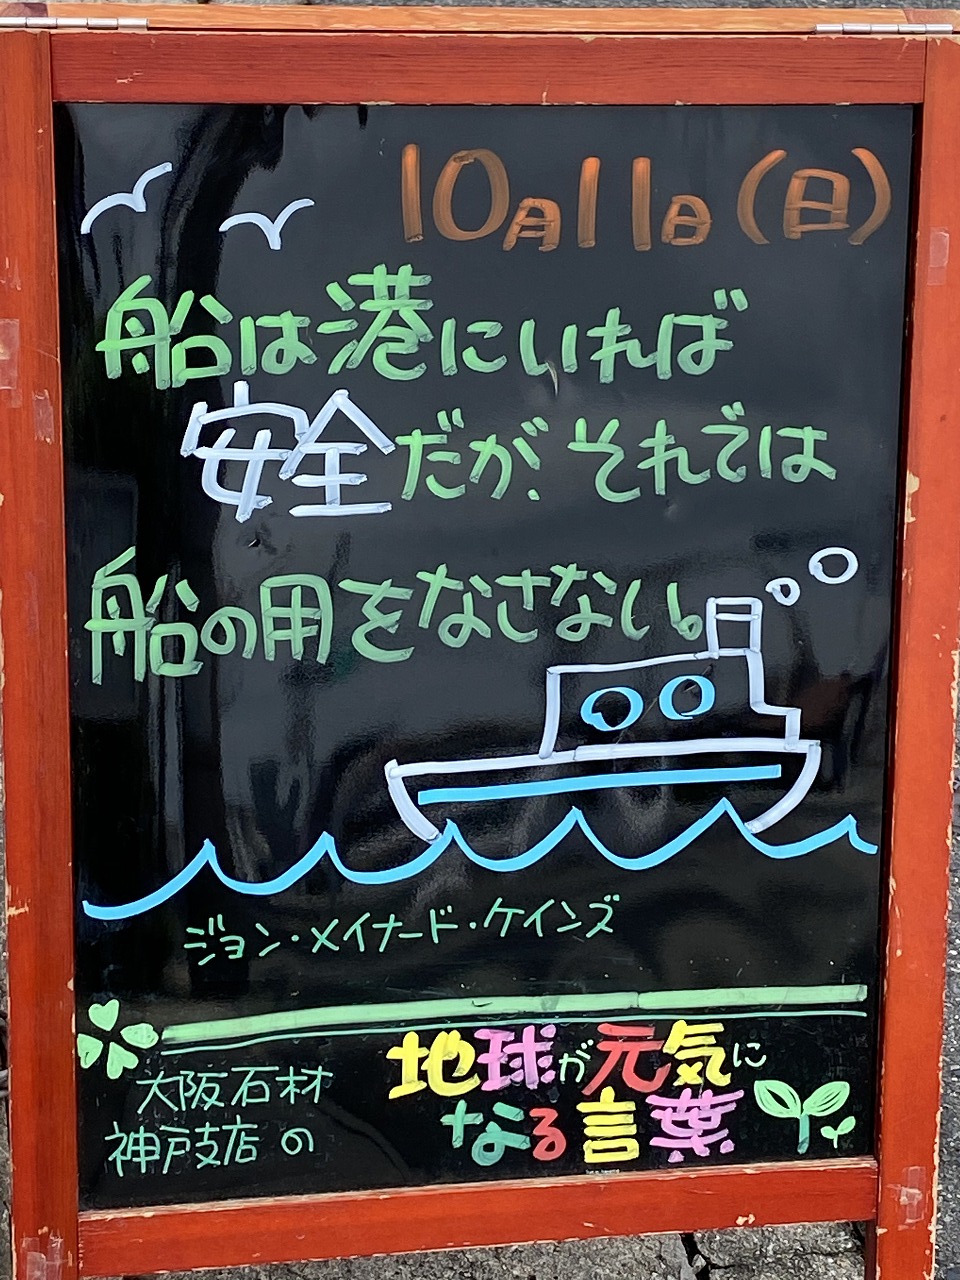 10月11日(日)
船は港にいれば
安全だが、それでは
船の用をなさない。
ジョン・メイナード・ケインズ
大阪石材
神戸支店の
地球が元気に
なる言葉